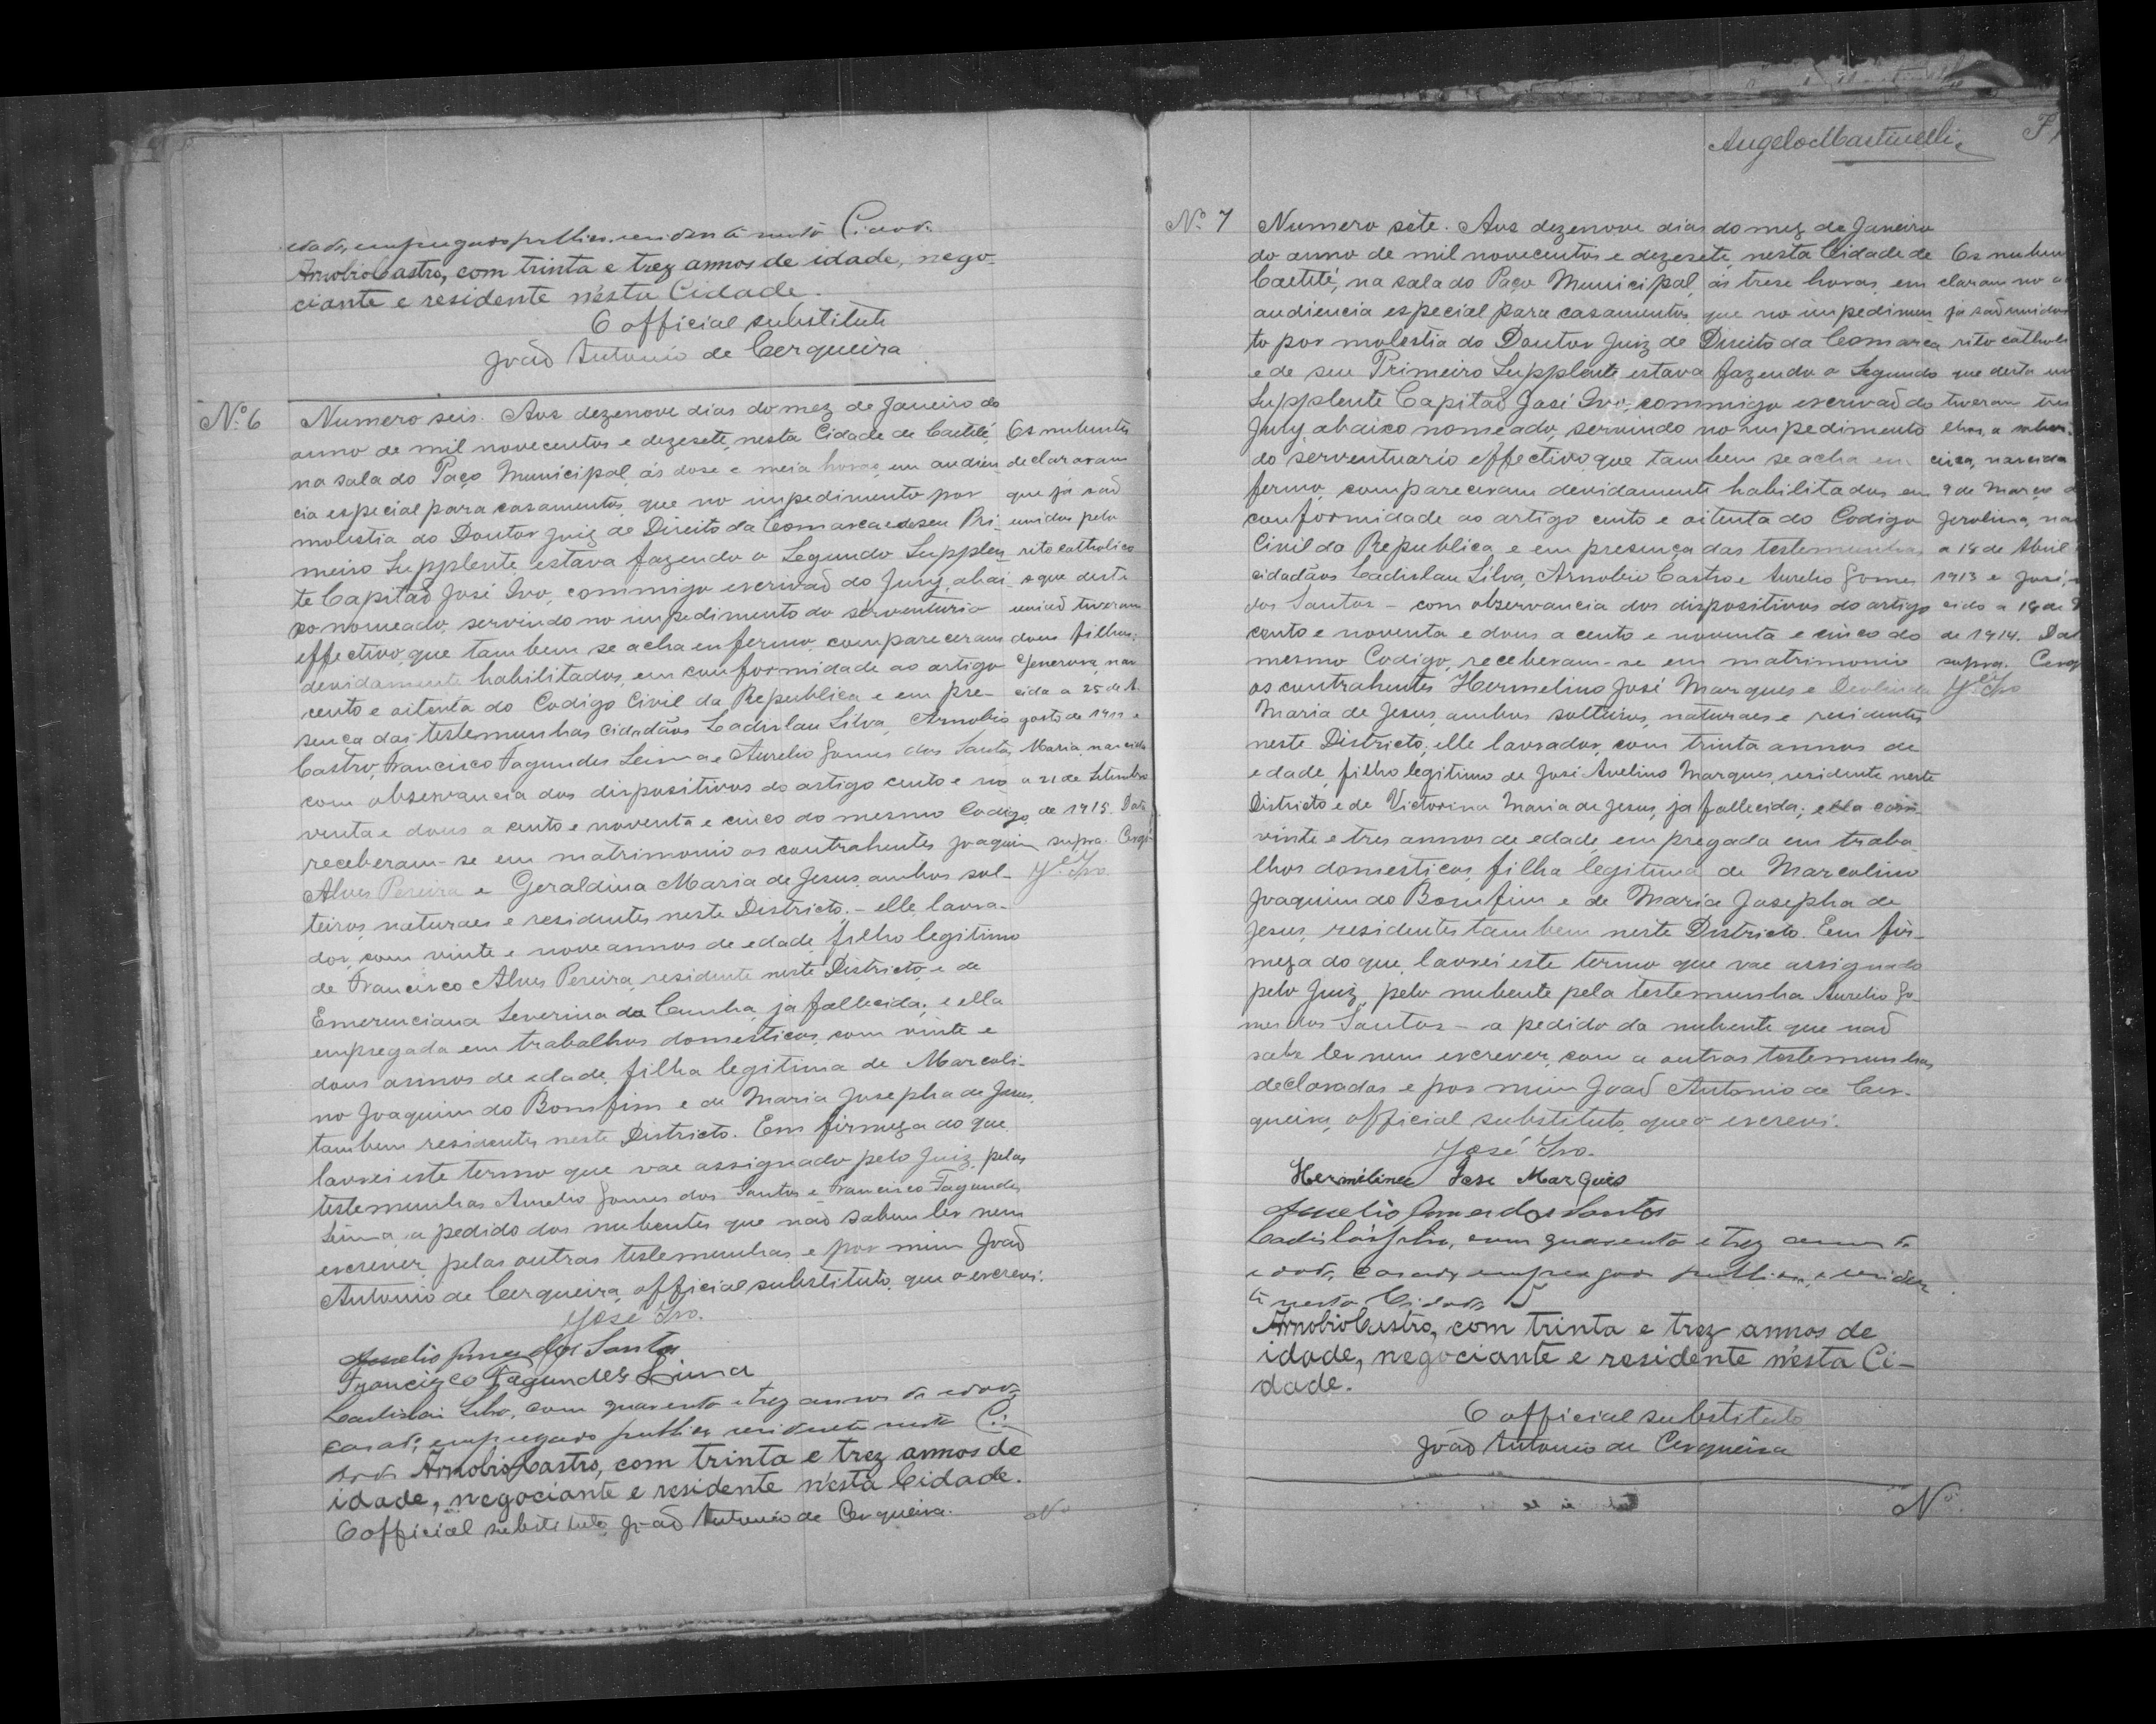 edade, empregado publico, residente nesta Cidade.
Arnobio Castro, com trinta e trez annos de idade, nego-
ciante e residente n'esta Cidade.
O official substituto
João Antonio de Cerqueira
Nº 6
Numero seis. Aos dezenove dias do mez de Janeiro do
anno de mil novecentos e dezesete, nesta Cidade de Caetité,
na sala do Paço Municipal, ás dose e meia horas, em audien
cia especial para casamentos, que no impedimento por
molestia do Doutor Juiz de Direito da Comarca e de seu Pri-
meiro Supplente estava fazendo o Segundo Supplen
te Capitão José Ivo, commigo escrivão do Jury, abai
xo nomeado, servindo no impedimento do serventuario
effectivo, que tambem se acha enfermo, compareceram
devidamente habilitados, em conformidade ao artigo
cento e oitenta do Codigo Civil da Republica e em pre-
sença das testemunhas cidadãos Ladislau Silva, Arnobio
Castro, Francisco Fagundes Lima e Aurelio Gomes dos Santos,
com observancia dos dispositivos do artigo cento e no
venta e dous a cento e noventa e cinco do mesmo Codigo,
receberam-se em matrimonio os contrahentes Joaquim
Alves Pereira e Geraldina Maria de Jesus, ambos sol-
teiros, naturaes e residentes neste Districto. - elle, lavra-
dor, com vinte e nove annos de edade filho legitimo
de Francisco Alves Pereira, residente neste Districto, e de
Emerenciana Severina da Cunha, ja fallecida; e ella
empregada em trabalhos domesticos, com vinte e
dous annos de edade, filha legitima de Marcoli-
no Joaquim do Bomfim e de Maria Josepha de Jesus,
tambem residentes neste Districto. Em firmeza do que
lavrei este termo que vae assignado pelo Juiz, pelas
testemunhas Aurelio Gomes dos Santos e Francisco Fagundes
Lima, a pedido dos nubentes que não sabem ler nem
escrever, pelas outras testemunhas e por mim João
Antonio de Cerqueira, official substituto, que o escrevi.
José Ivo.
Aurelio Gomes dos Santos
Francizco Fagundes Lima
Ladislau Silva, com quarenta e trez annos de edade,
casado, empregado publico, residente nesta Ci-
dade Arnobio Castro, com trinta e trez annos de
idade, negociante e residente n'esta Cidade.
O official substituto, João Antonio de Cerqueira.
Nº
Os nubentes
declararam
que já são
unidos pelo
rito catholico
e que desta
união tiveram
dous filhos:
Generosa, nas
cida a 25 de A-
gosto de 1911 e
Maria, nascida
a 21 de Setembro
de 1915. Data
supra. Cerq
Jé Ivo.
Angelo Martinelli
Nº 7
Numero sete. Aos dezenove dias do mez de Janeiro
do anno de mil novecentos e dezesete, nesta Cidade de
Caetité, na sala do Paço Municipal, ás trese horas, em
audiencia especial para casamentos, que no impedimen-
to por molestia do Doutor Juiz de Direito da Comarca
e de seu Primeiro Supplente estava fazendo o Segundo
Supplente Capitão José Ivo, commigo escrivão do
Jury, abaixo nomeado, servindo no impedimento
do serventuario effectivo, que tambem se acha en
fermo, compareceram devidamente habilitados em
conformidade ao artigo cento e oitenta do Codigo
Civil da Republica, e em presença das testemunhas
cidadãos Ladislau Silva, Arnobio Castro e Aurelio Gomes
dos Santos - com observancia dos dispositivos do artigo
cento e noventa e dous a cento e noventa e cinco do
mesmo Codigo, receberam-se em matrimonio
os contrahentes Hermelino José Marques e Deolinda
Maria de Jesus, ambos solteiros, naturaes e residentes
neste Districto; elle lavrador, com trinta annos de
edade, filho legitimo de José Avelino Marques, residente neste
Districto e de Victorina Maria de Jesus, ja fallecida; ella com
vinte e tres annos de edade, empregada em traba
lhos domesticos, filha legitima de Marcolino
Joaquim do Bomfim e de Maria Josepha de
Jesus, residentes tambem neste Districto. Em fir-
meza do que, lavrei este termo que vae assignado
pelo Juiz, pelo nubente pela testemunha Aurelio Go-
mes dos Santos - a pedido da nubente que não
sabe ler nem escrever, com a outras testemunhas
declaradas e por mim João Antonio de Cer-
queira, official substituto, que o escrevi.
José Ivo.
Hermilineo Jose Marques
Aurelio Gomes dos Santos
Ladislau Silva, com quarenta e trez annos de
edade, casado, empregado publico, e residen
te nesta Cidade
Arnobio Castro, com trinta e trez annos de
idade, negociante e residente n'esta Ci-
dade.
O official substituto
João Antonio de Cerqueira
Nº
Os nuben
claram no a
ja são unidos
rito catholi
que desta un
tiveram tres
lhos, a saber:
nascida
9 de Março d
Jerolina, na
a 18 de Abril
1913 e José,
cido a 18 de
de 1914. Dat
supra. Cerq
Jé Ivo